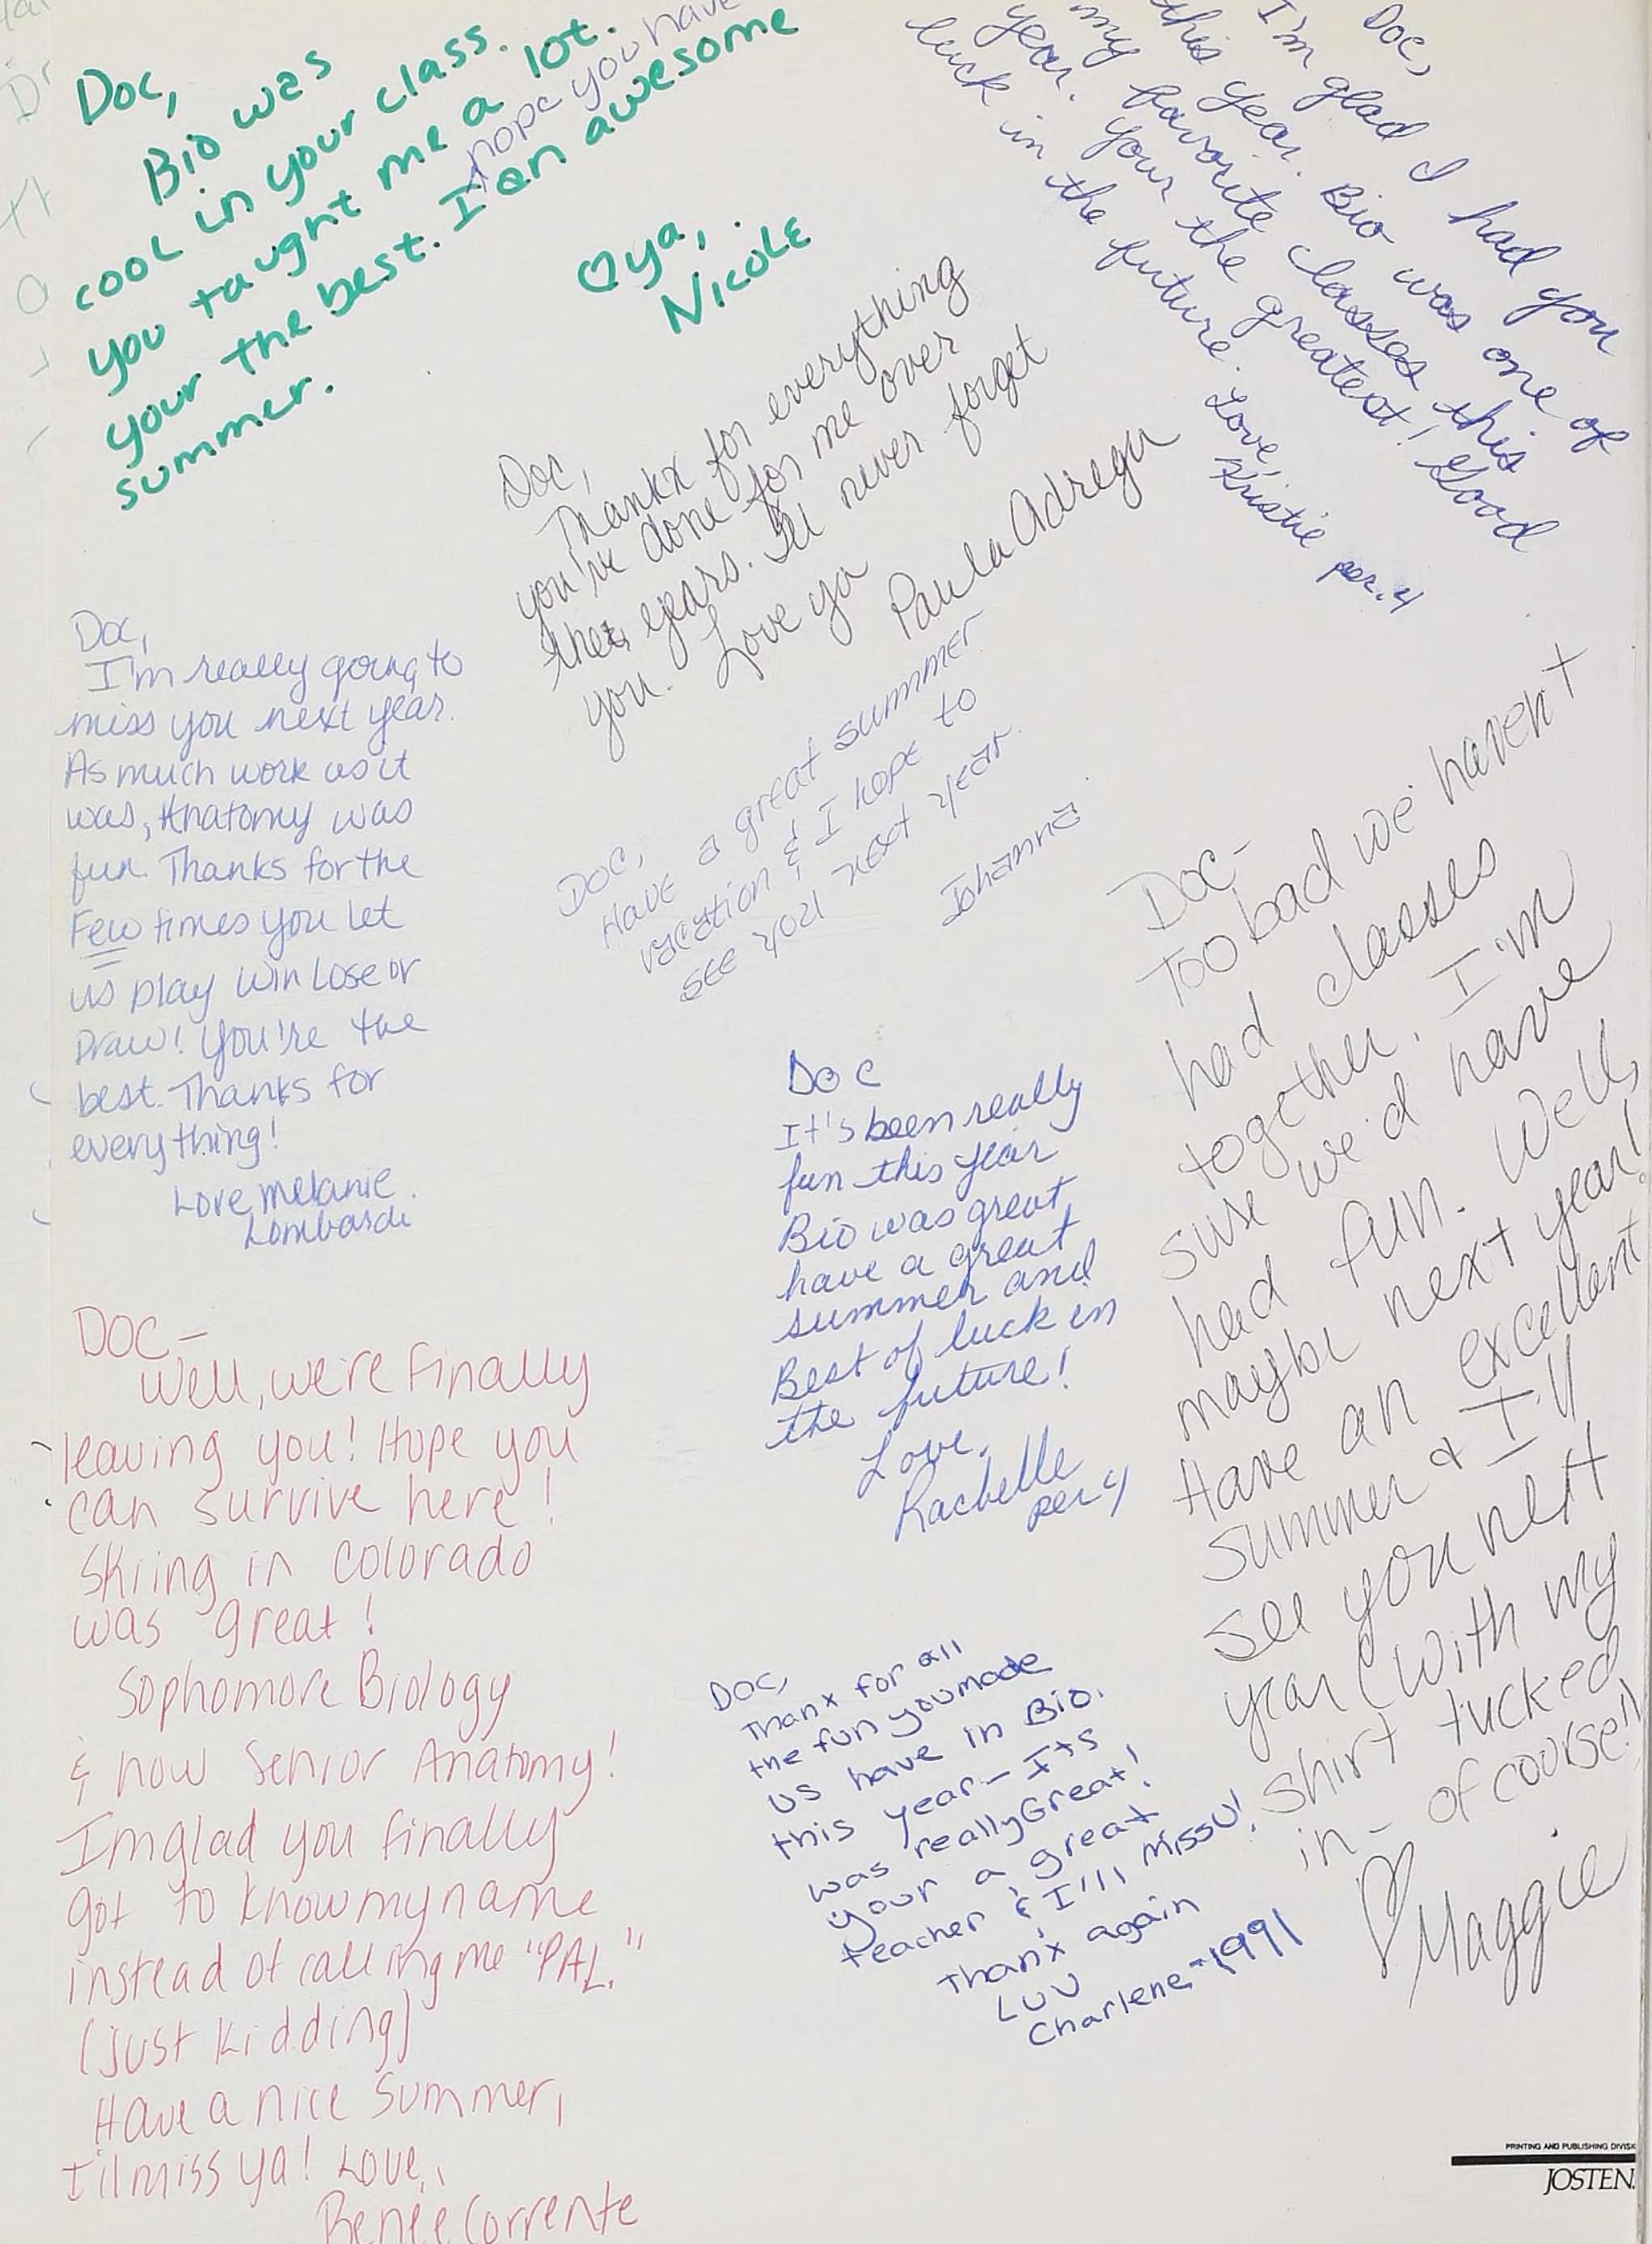 Doc,
Bio was
cool in your class.
you taught me a lot.
your the best. I
hope you have
an awesome
summer.
♡ya,
Nicole
Doc,
I'm glad I had you
this year. Bio was one of
my favorite classes this
year. Your the greatest! Good
luck in the future.
Love,
Kristie per. 4
Doc,
Thankx for everything
you've done for me over
thes years. I'll never forget
you. Love ya
Paula Adrega
Doc,
I'm really going to
miss you next year.
As much work as it
was, Anatomy was
fun. Thanks for the
Few times you let
us play Win Lose or
Draw! You're the
best. Thanks for
everything!
Love, Melanie
Lombardi
DOC,
Have a great summer
vacation & I hope to
see you next year.
Johanna
Doc-
Too bad we haven't
had classes
together. I'm
sure we'd have
had fun. Well,
maybe next year!
Have an excellent
summer & I'll
see you next
year (with my
shirt tucked
in- of course!)
♡Maggie
Doc
It's been really
fun this year
Bio was great
have a great
summer and
Best of luck in
the future!
Love,
Rachelle
per 4
DOC-
Well, we're finally
leaving you! Hope you
can survive here!
Skiing in Colorado
was great!
Sophomore Biology
& now Senior Anatomy!
I'm glad you finally
got to know my name
instead of calling me "PAL."
(just kidding)
Have a nice summer,
I'll miss ya! Love,
Renée Corrente
Doc,
Thanx for all
the fun you made
us have in Bio.
this year- Its
was really Great!
your a great
teacher & I'll miss U!
Thanx again
LUV
Charlene-1991
PRINTING AND PUBLISHING DIVIS
JOSTEN